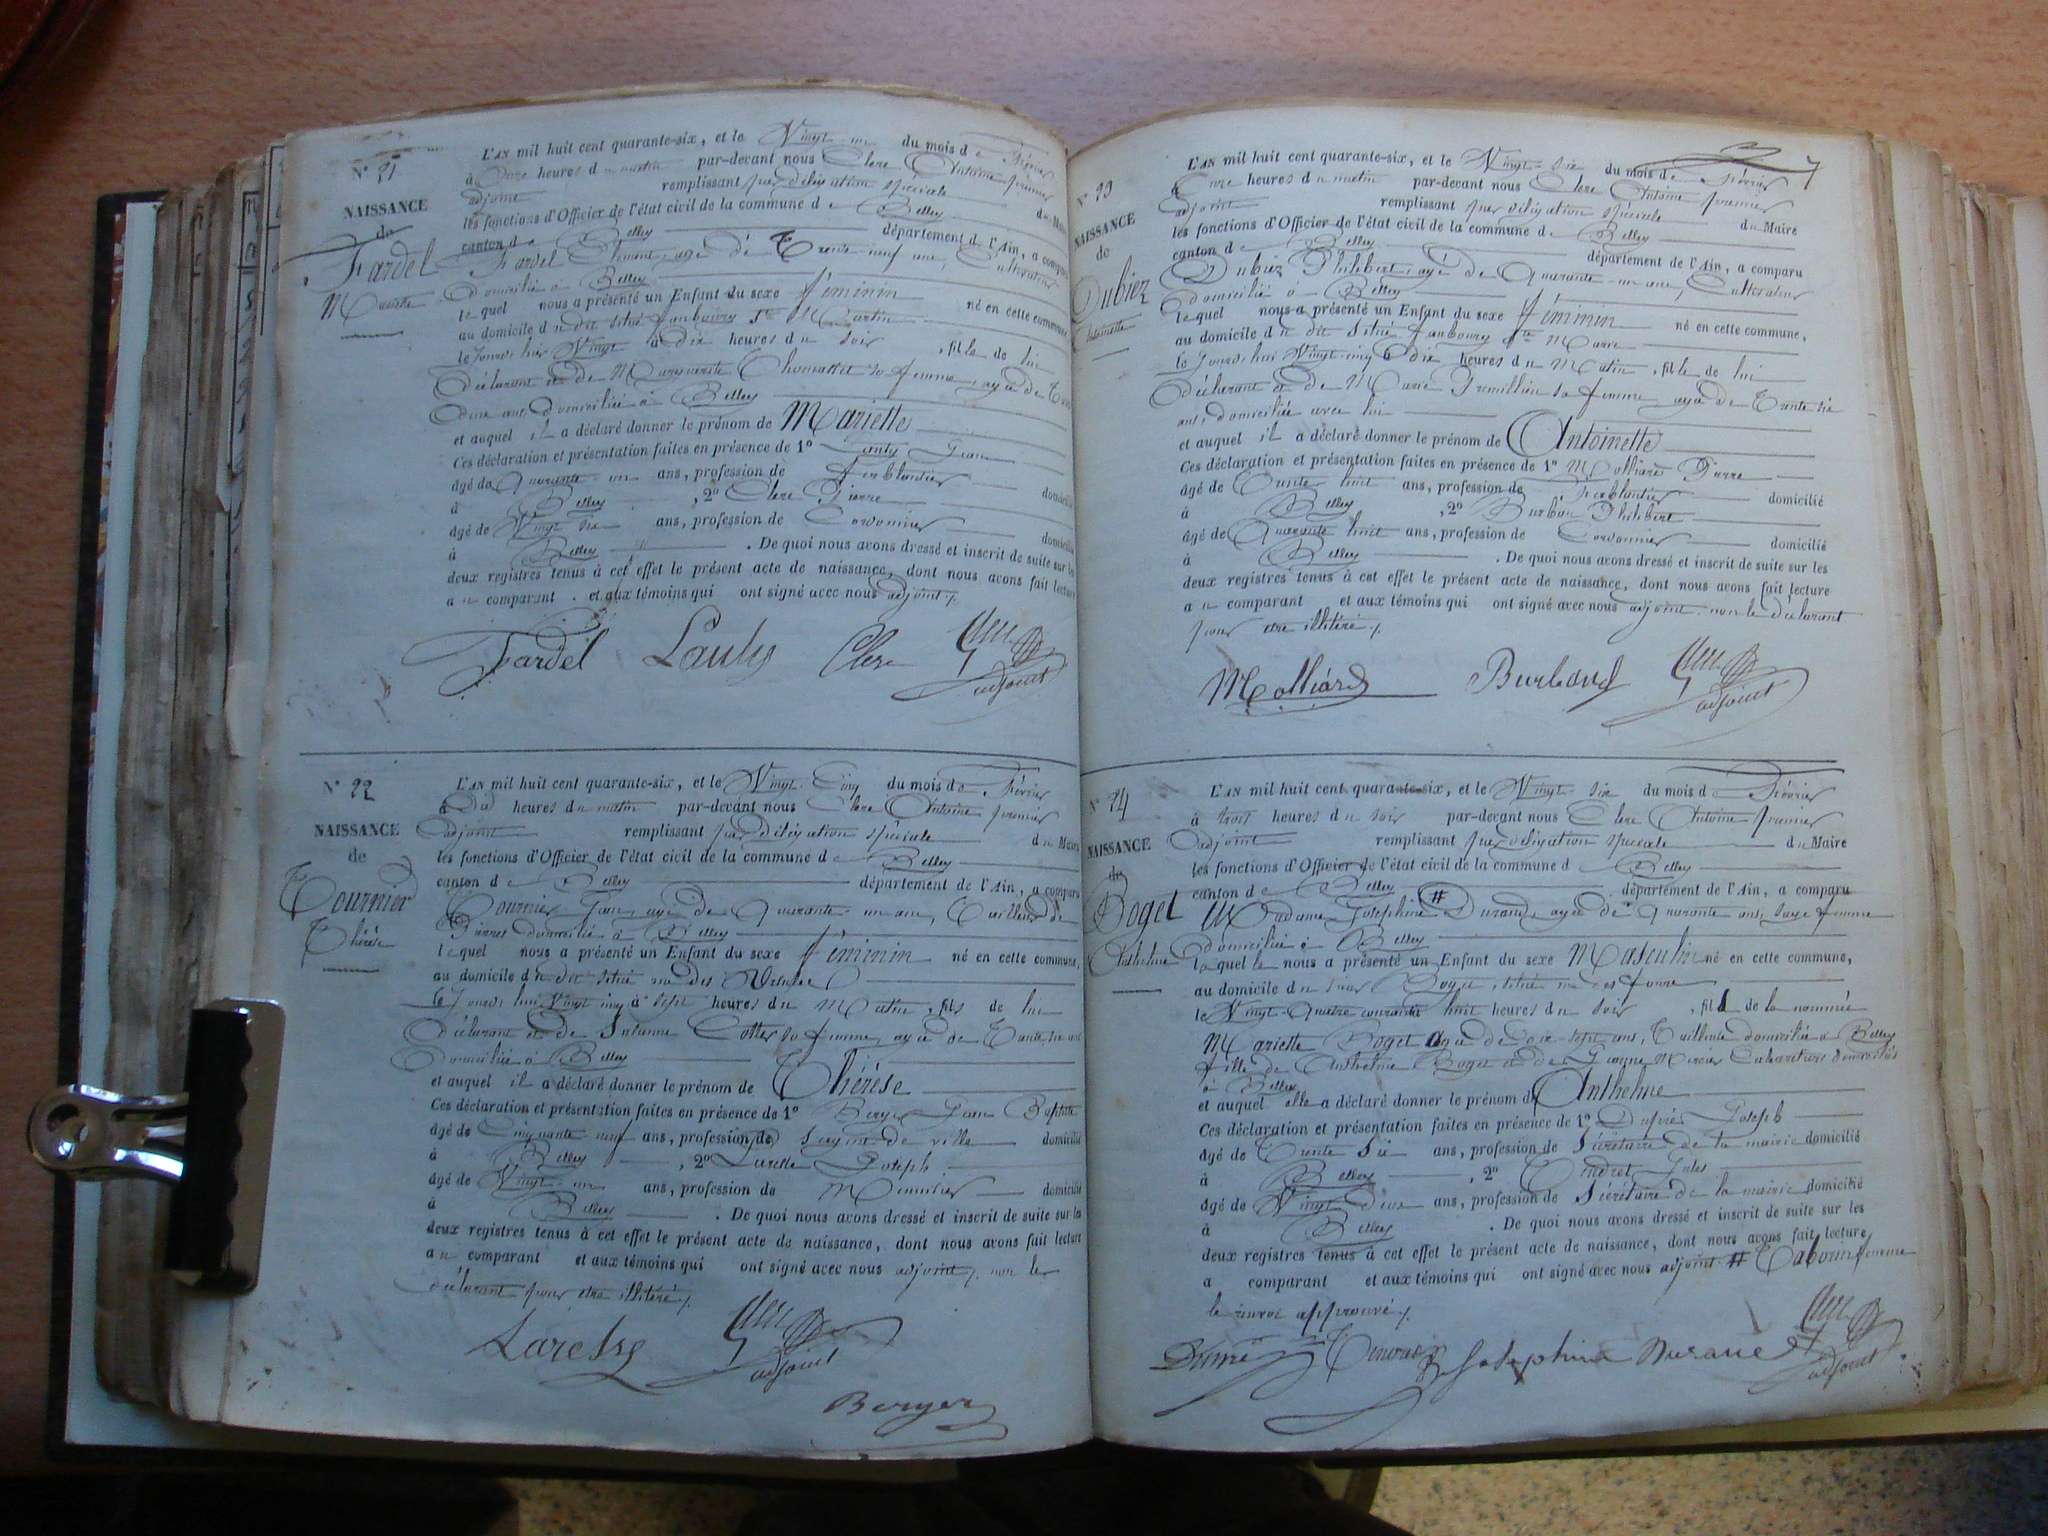 N° 21
NAISSANCE
de
Fardel
Mariette
L'AN mil huit cent quarante-six, et le Vingt un du mois de Février
à Onze heures du matin par-devant nous Clerc Antoine premier
adjoint remplissant par délégation spéciale du Maire
les fonctions d'Officier de l'état civil de la commune de Belley
canton de Belley département de l'Ain, a comparu
Fardel Clément, agé de Trente neuf ans, Cultivateur
domicilié à Belley
lequel nous a présenté un Enfant du sexe féminin né en cette commune,
au domicile du dit situé faubourg St Martin
le jourd'hier Vingt à dix heures du soir, fille de lui
déclarant et de Marguerite sa femme, agée de
ans, domiciliée à Belley
et auquel il a déclaré donner le prénom de Mariette
Ces déclaration et présentation faites en présence de 1° Jean
âgé de Quarante un ans, profession de ferblantier domicilié
à Belley, 2° Clerc Pierre
âgé de Vingt six ans, profession de Cordonnier domicilié
à Belley. De quoi nous avons dressé et inscrit de suite sur les
deux registres tenus à cet effet le présent acte de naissance, dont nous avons fait lecture
au comparant et aux témoins qui ont signé avec nous adjoint ./.
Fardel Clerc Clerc adjoint
N° 22
NAISSANCE
de
Tournier
Thérèse
L'AN mil huit cent quarante-six, et le Vingt Cinq du mois de Février
à Dix heures du matin par-devant nous Clerc Antoine premier
adjoint remplissant par délégation spéciale du Maire
les fonctions d'Officier de l'état civil de la commune de Belley
canton de Belley département de l'Ain, a comparu
Tournier Jean, agé de Quarante un ans, Tailleur de
Pierres domicilié à Belley
lequel nous a présenté un Enfant du sexe féminin né en cette commune,
au domicile du dit situé rue des
le jourd'hui Vingt cinq à sept heures du Matin, fils de lui
déclarant et de Suzanne sa femme, agée de Trente six ans
domiciliée à Belley
et auquel il a déclaré donner le prénom de Thérèse
Ces déclaration et présentation faites en présence de 1° Berger Jean Baptiste
âgé de Cinquante neuf ans, profession de Sergent de ville domicilié
à Belley, 2° Joseph
âgé de Vingt un ans, profession de Menuisier domicilié
à Belley. De quoi nous avons dressé et inscrit de suite sur les
deux registres tenus à cet effet le présent acte de naissance, dont nous avons fait lecture
au comparant et aux témoins qui ont signé avec nous adjoint ./. non le
déclarant pour être illitéré ./.
Clerc adjoint
Berger
7
N° 23
NAISSANCE
de
Dubiez
Antoinette
L'AN mil huit cent quarante-six, et le Vingt six du mois de Février
à Onze heures du matin par-devant nous Clerc Antoine premier
adjoint remplissant par délégation spéciale du Maire
les fonctions d'Officier de l'état civil de la commune de Belley
canton de Belley département de l'Ain, a comparu
Dubiez Philibert, agé de Quarante un ans, Cultivateur
domicilié à Belley
lequel nous a présenté un Enfant du sexe féminin né en cette commune,
au domicile du dit situé faubourg
le jourd'hier Vingt cinq à dix heures du Matin, fille de lui
déclarant et de Marie sa femme, agée de Trente six
ans, domiciliée avec lui
et auquel il a déclaré donner le prénom de Antoinette
Ces déclaration et présentation faites en présence de 1° Molliard Pierre
âgé de Trente huit ans, profession de Ferblantier domicilié
à Belley, 2° Burbon Philibert
âgé de Quarante huit ans, profession de Cordonnier domicilié
à Belley. De quoi nous avons dressé et inscrit de suite sur les
deux registres tenus à cet effet le présent acte de naissance, dont nous avons fait lecture
au comparant et aux témoins qui ont signé avec nous adjoint non le déclarant
pour être illitéré ./.
Molliard Clerc adjoint
N° 24
NAISSANCE
de
Boget
Anthelme
L'AN mil huit cent quarante-six, et le Vingt six du mois de Février
à trois heures du soir par-devant nous Clerc Antoine premier
adjoint remplissant par délégation spéciale du Maire
les fonctions d'Officier de l'état civil de la commune de Belley
canton de Belley département de l'Ain, a comparu
Madame Joséphine # Durand, agée de Quarante ans, sage femme
domiciliée à Belley
laquelle nous a présenté un Enfant du sexe Masculin né en cette commune,
au domicile du sieur Boget, situé rue des
le Vingt-Quatre courant à huit heures du soir, fils de la nommée
Mariette Boget agée de dix-sept ans, Tailleuse domiciliée à Belley
fille de Anthelme Boget et de Mercier Cabaretiers domiciliés
à Belley
et auquel elle a déclaré donner le prénom de Anthelme
Ces déclaration et présentation faites en présence de 1° Joseph
âgé de Trente Six ans, profession de Secrétaire de la mairie domicilié
à Belley, 2° Jules
âgé de Vingt deux ans, profession de Secrétaire de la mairie domicilié
à Belley. De quoi nous avons dressé et inscrit de suite sur les
deux registres tenus à cet effet le présent acte de naissance, dont nous avons fait lecture
a comparant et aux témoins qui ont signé avec nous adjoint # femme
le renvoi approuvé ./.
Joséphine Clerc adjoint